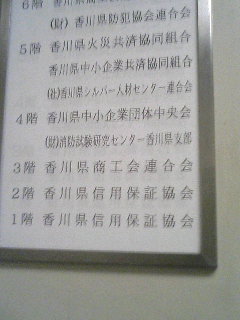 6階 香川県商
(財)香川県防犯協会連合会
5階 香川県火災共済協同組合
香川県中小企業共済協同組合
(社)香川県シルバー人材センター連合会
4階 香川県中小企業団体中央会
(財)消防試験研究センター香川県支部
3階 香川県商工会連合会
2階 香川県信用保証協会
1階 香川県信用保証協会